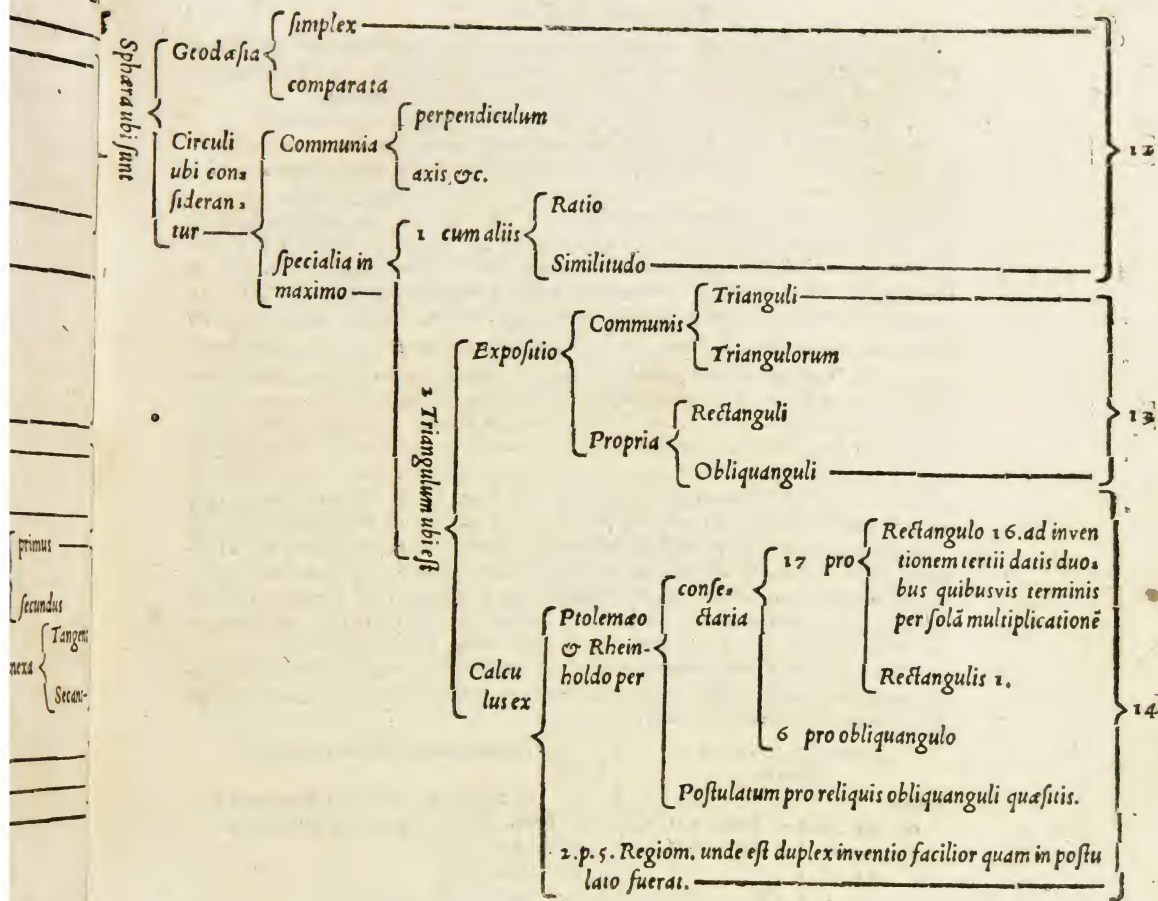 Sphæra ubi ſunt
Geodæſia
ſimplex
comparata
Circuli
ubi con⸗
ſideran⸗
tur
Communia
perpendiculum
axis, &c.
ſpecialia in
maximo
1 cum aliis
Ratio
Similitudo
12
2 Triangulum ubi eſt
Expoſitio
Communis
Trianguli
Triangulorum
Propria
Rectanguli
Obliquanguli
13
Calcu
lus ex
Ptolemæo
& Rhein-
holdo per
conſe⸗
ctaria
17 pro
Rectangulo 16. ad inven
tionem tertii datis duo⸗
bus quibusvis terminis
per ſolã multiplicationẽ
Rectangulis 1.
6 pro obliquangulo
Poſtulatum pro reliquis obliquanguli quæſitis.
2. p. 5. Regiom. unde eſt duplex inventio facilior quam in poſtu
lato fuerat.
14
primus
ſecundus
nexa
Tangens
Secans